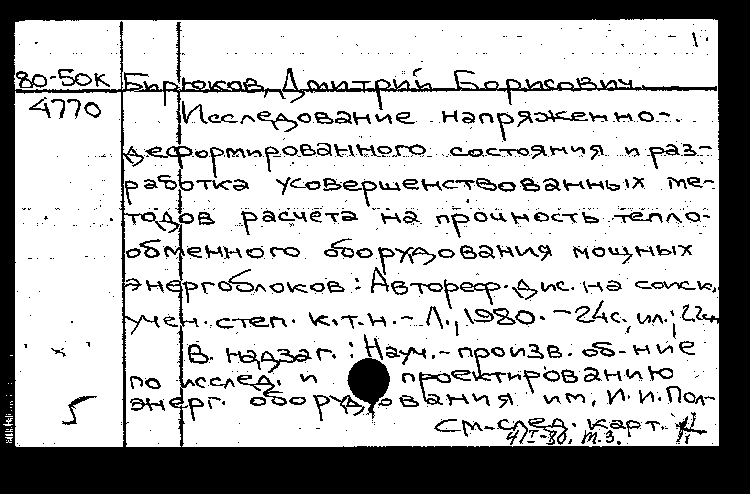 1.
80-50к Бирюков, Дмитрий Борисович.
4770 Исследование напряженно-
деформированного состояния и раз-
работка усовершенствованных ме-
тодов расчета на прочность тепло-
обменного оборудования мощных
энергоблоков: Автореф. дис. на соиск.
учен. степ. к.т.н. - Л., 1980. - 24с., ил.; 22см
В. надзаг.: Науч.-произв. об-ние
по исслед. и проектированию
энерг. оборудования им. И.И. Пол-
см. след. карт.
4/I-80. т.з.